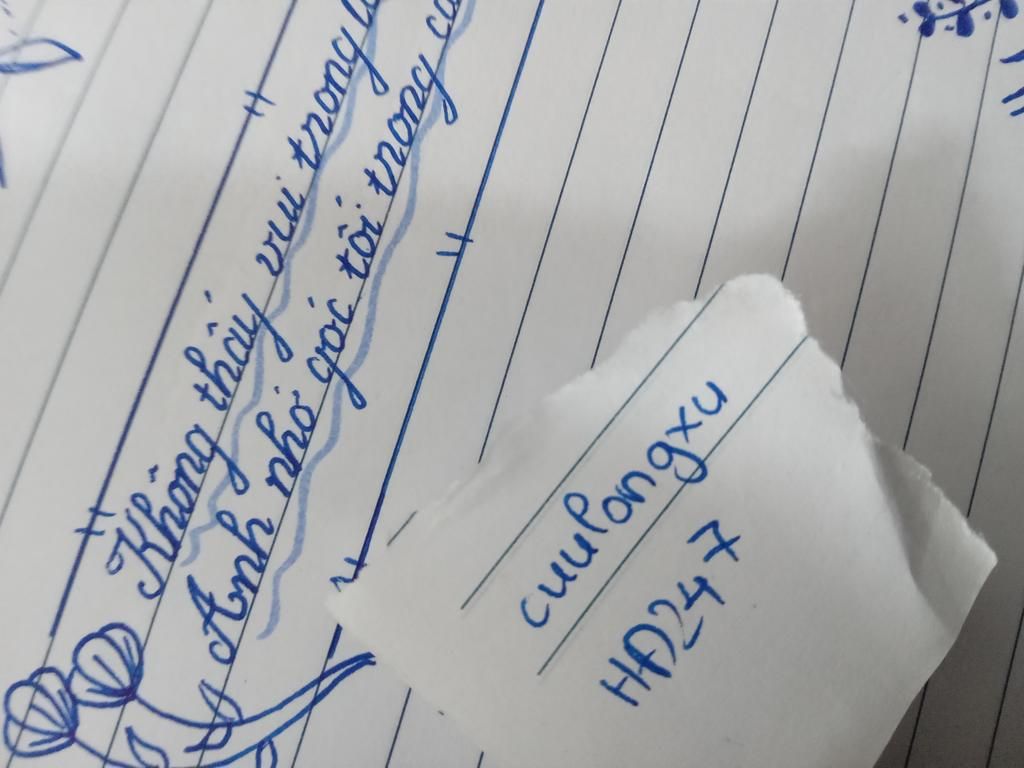 Không thấy vui trong
Anh nhớ gói tôi trong
cuulongxu
HAD247